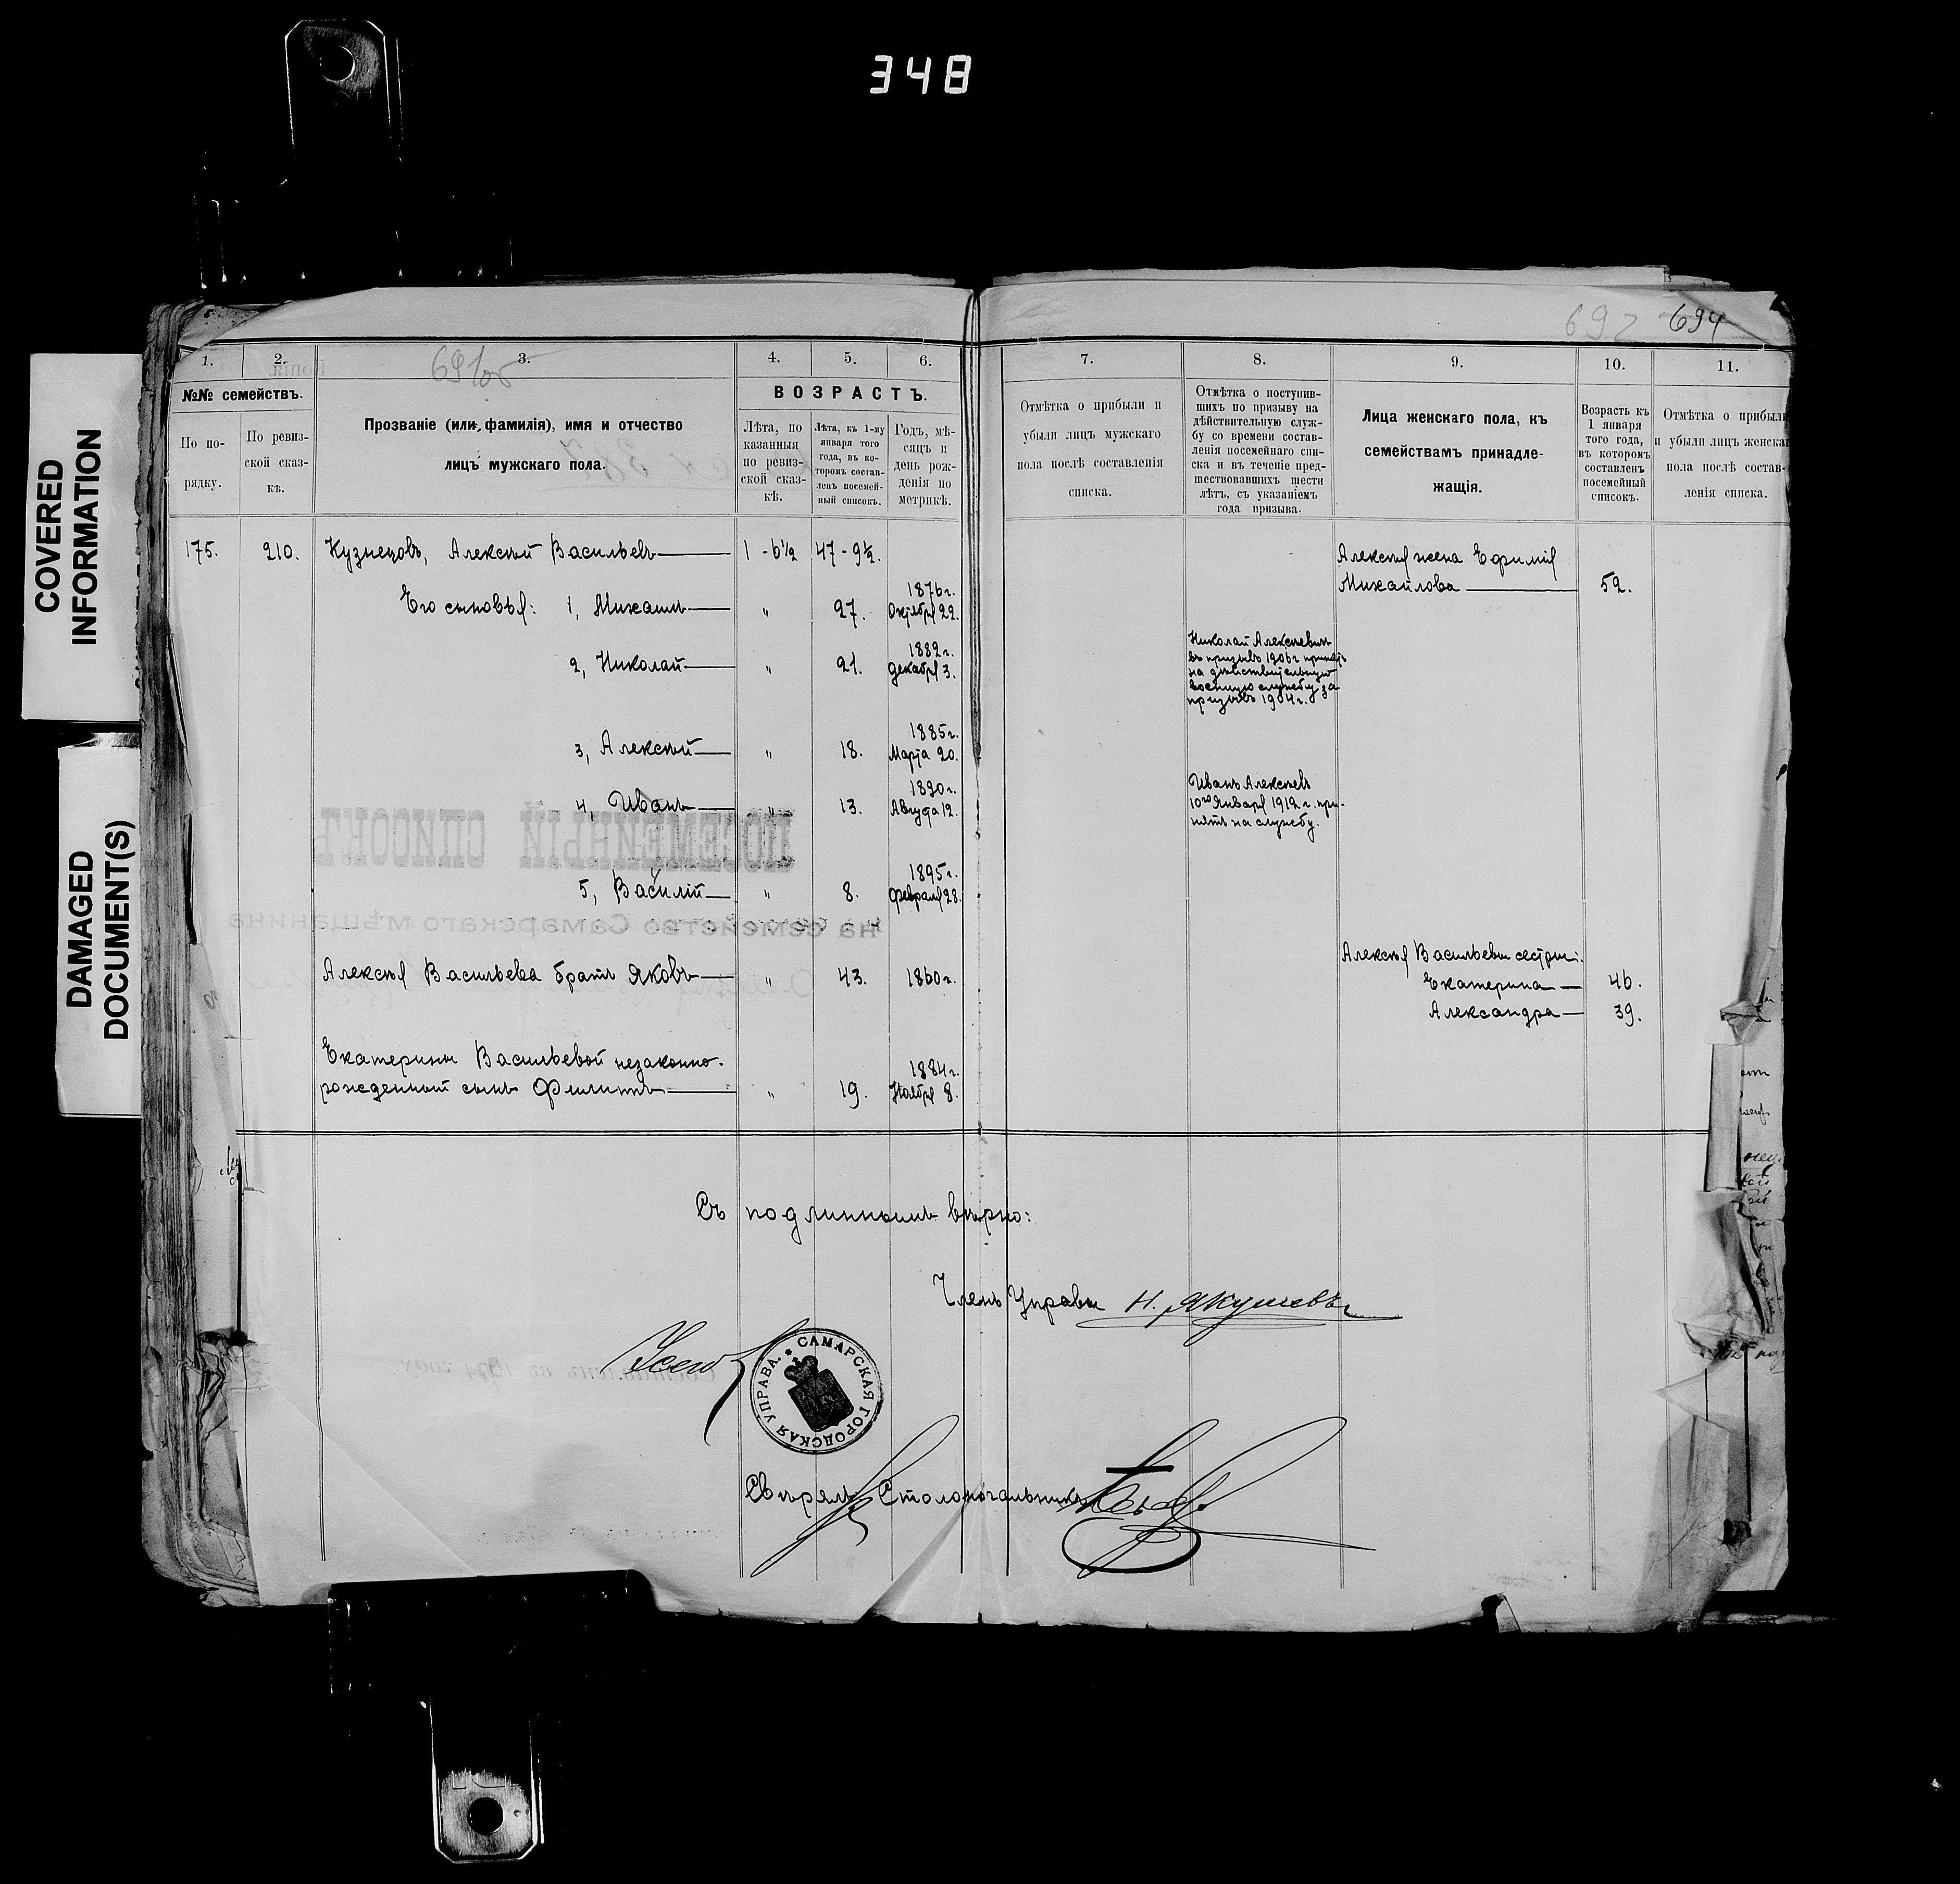 348
COVERED
INFORMATION
DAMAGED
DOCUMENT(S)
692 694
691об
1. 2. 3. 4. 5. 6. 7. 8. 9. 10. 11.
№№ семействъ.
По по-
рядку.
По ревиз-
ской сказ-
кѣ.
Прозваніе (или, фамилія), имя и отчество
лицъ мужскаго пола.
ВОЗРАСТЪ.
Лѣта, по
казанныя
по ревиз-
ской сказ-
кѣ.
Лѣта, къ 1-му
января того
года, въ ко-
торомъ состав-
ленъ посемей-
ный списокъ.
Годъ, мѣ-
сяцъ и
день рож-
денія по
метрикѣ.
Отмѣтка о прибыли и
убыли лицъ мужскаго
пола послѣ составленія
списка.
Отмѣтка о поступив-
шихъ по призыву на
дѣйствительную служ-
бу со времени состав-
ленія посемейнаго спи-
ска и въ теченіе пред-
шествовавшихъ шести
лѣтъ, съ указаніемъ
года призыва.
Лица женскаго пола, къ
семействамъ принадле-
жащія.
Возрасть къ
1 января
того года,
въ которомъ
составленъ
посемейный
списокъ.
Отмѣтка о прибыли
и убыли лицъ женска
пола послѣ состав-
ленія списка.
175. 210. Кузнецовъ, Алексѣй Васильевъ 1 - 6½ 47 - 9½.
Алексѣя жена Ефимія
Михайлова 52.
Его сыновья: 1, Михаилъ " 27. 1876 г. Октября 22.
2, Николай " 21. 1882 г. Декабря 3.
Николай Алексѣевичъ
въ призывъ 1906 г принятъ
на дѣйствительную
военную службу за
призывъ 1904 г.
3, Алексѣй " 18. 1885 г. Марта 20.
4, Иванъ " 13. 1890 г. Августа 12.
Иванъ Алексѣевъ
10го Января 1912 г. при-
нятъ на службу.
5, Василій " 8. 1895 г. Февраля 28.
Алексѣя Васильева братъ Яковъ " 43. 1860 г.
Алексѣя Васильева сестры:
Екатерина 46.
Александра 39.
Екатерины Васильевой незаконно-
рожденный сынъ Филиппъ " 19. 1884 г. Ноября 8.
Съ подлиннымъ вѣрно:
Членъ Управы Н. Якушевъ
САМАРСКАЯ ГОРОДСКАЯ УПРАВА.
Свѣрялъ Столоначальникъ
ПОСЕМЕЙНЫЙ СПИСОКЪ
на семейство Самарскаго мѣщанина